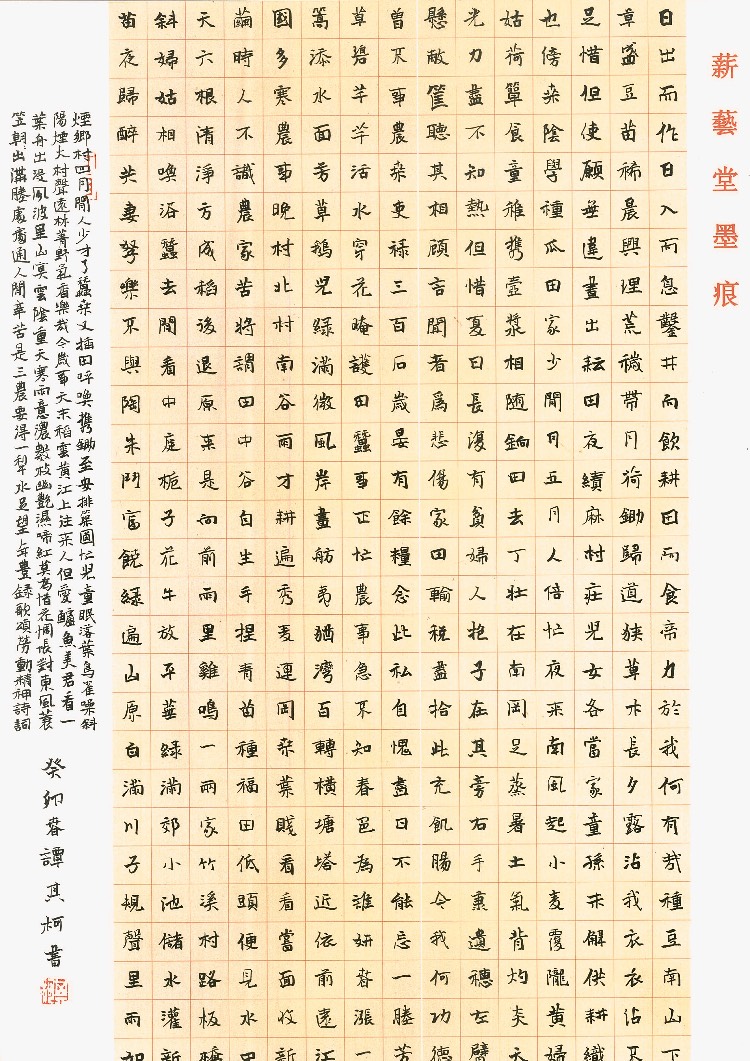 薪藝堂墨痕
日出而作日入而息鑿井而飲耕田而食帝力於我何有哉種豆南山下
草盛豆苗稀晨興理荒穢帶月荷鋤歸道狹草木長夕露沾我衣衣沾不
足惜但使願無違晝出耘田夜績麻村莊兒女各當家童孫未解供耕織
也傍桑陰學種瓜田家少閒月五月人倍忙夜來南風起小麥覆隴黃婦
姑荷簞食童稚携壺漿相隨餉田去丁壯在南岡足蒸暑土氣背灼炎天
光力盡不知熱但惜夏日長復有貧婦人抱子在其旁右手秉遺穗左臂
懸敝筐聽其相顧言聞者為悲傷家田輸稅盡拾此充飢腸今我何功德
曾不事農桑吏祿三百石歲晏有餘糧念此私自愧盡日不能忘一塍芳
草碧芊芊活水穿花暗護田蠶事正忙農事急不知春色為誰妍春漲一
篙添水面芳草鵝兒綠滿微風岸畫舫夷猶灣百轉橫塘塔近依前遠江
國多寒農事晚村北村南谷雨才耕遍秀麥連岡桑葉賤看看嘗面收新
繭時人不識農家苦將謂田中谷自生手捏青苗種福田低頭便見水田
天六根清淨方成稻後退原來是向前雨里雞鳴一兩家竹溪村路板橋
斜婦姑相喚浴蠶去閒看中庭梔子花午放平蕪綠滿郊小池儲水灌新
苗夜歸醉共妻孥樂不與陶朱鬥富饒綠遍山原白滿川子規聲里雨如
煙鄉村四月閒人少才了蠶桑又插田呼喚携鋤至安排築圃忙兒童眠落葉鳥雀噪斜
陽煙火村聲遠林菁野氣香樂哉今歲事天末稻雲黃江上往來人但愛鱸魚美君看一
葉舟出沒風波里山冥雲陰重天寒雨意濃數枝幽艷濕啼紅莫為惜花惆悵對東風蓑
笠朝朝出溝塍處處通人間辛苦是三農要得一犁水足望年豐錄歌頌勞動精神詩詞
癸卯春譚其柯書